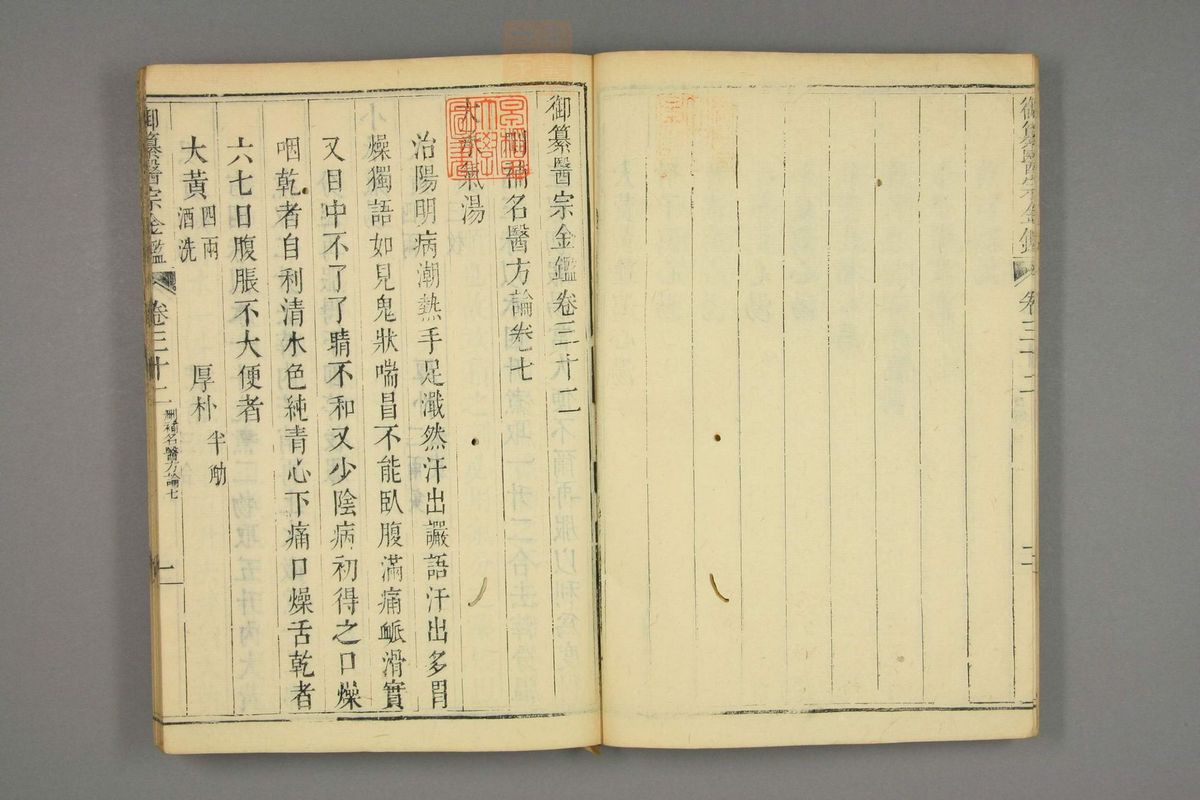 卷三十二
御纂醫宗金鑑卷三十二
刪補名醫方論卷七
大承氣湯
治陽明病潮熱手足濈然汗出讝語汗出多胃
燥獨語如見鬼狀喘冒不能臥腹滿痛脈滑實
又目中不了了睛不和又少陰病初得之口燥
咽乾者自利清水色純青心下痛口燥舌乾者
六七日腹脹不大便者
大黃 四兩 酒洗 厚朴 半觔
御纂醫宗金鑑 卷三十二 刪補名醫方論七 一